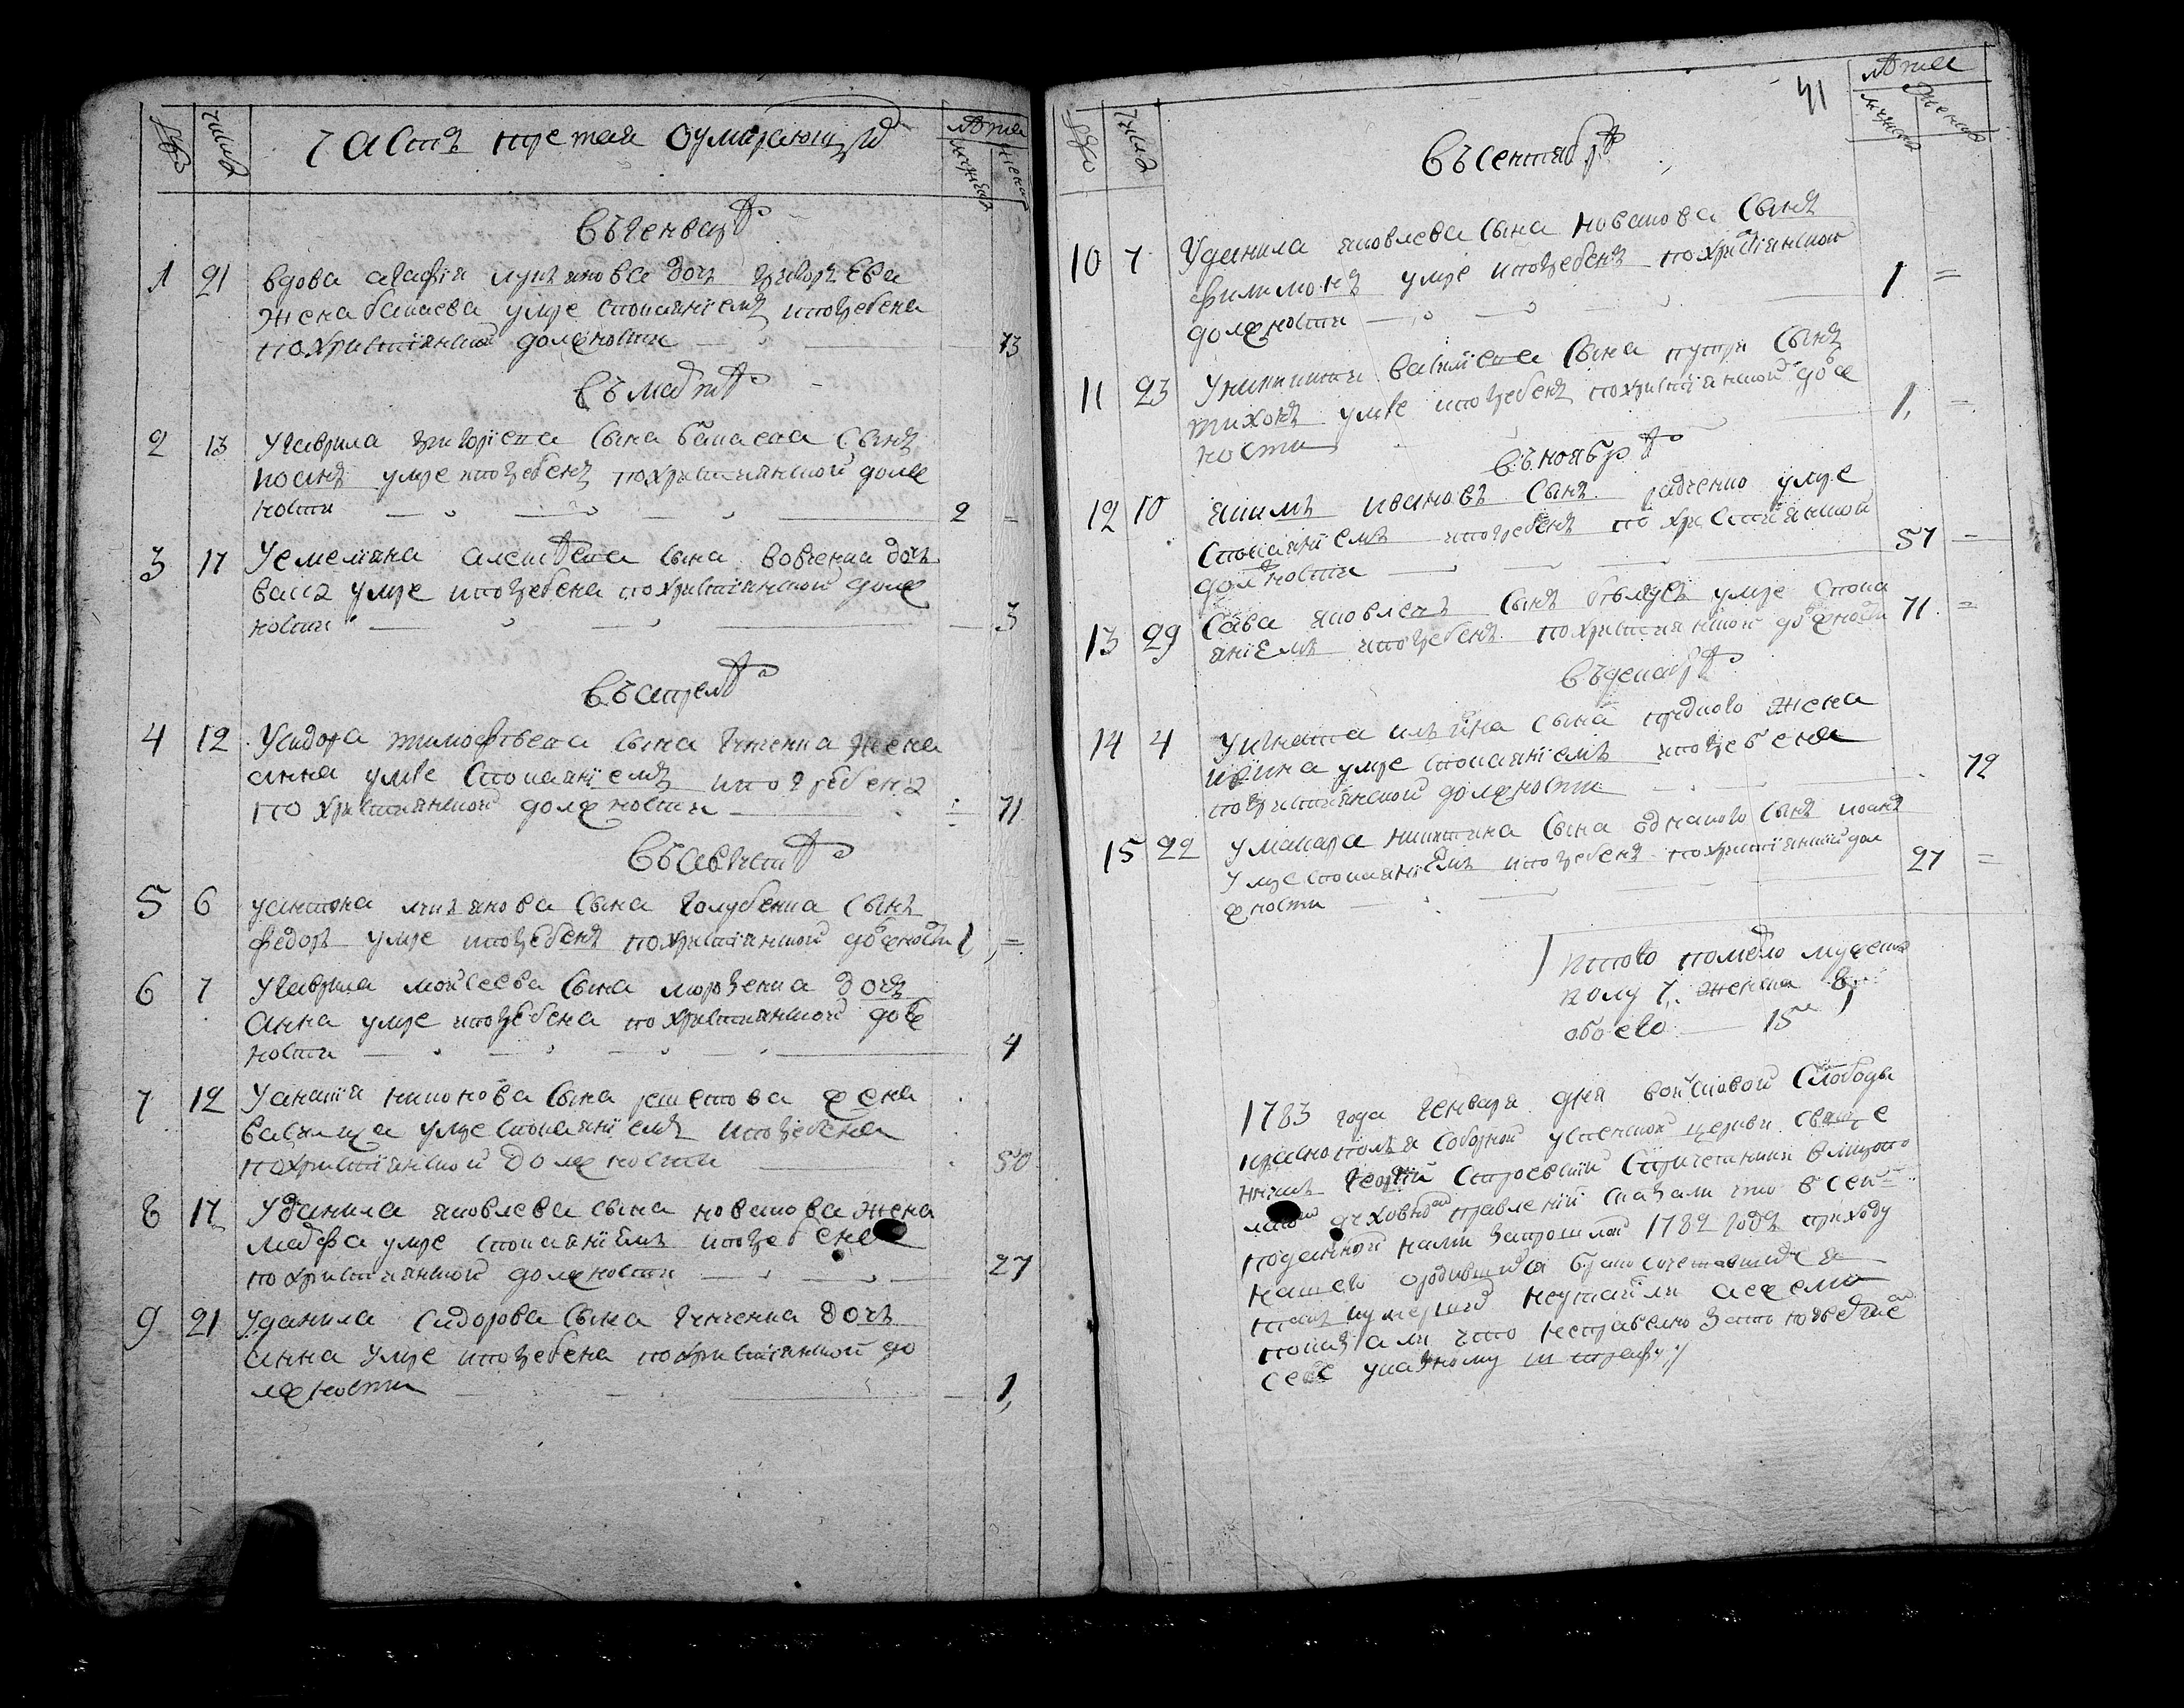 часть третая о умирающихъ
лѣта
мужеска
женска
въ генварѣ
1 21 вдова агафiя лукьянова дочь григорьева
жена бакаева умре спокаянiемъ ипогребена
похристiянской должности 73
въ мартѣ
2 13 У гаврила григорiева сына бакаева сынъ
иоанъ умре ипогребенъ похристиянской долж
ности 2 =
3 17 У емелiяна алексѣева сына вовченка дочь
васса умре ипогребена похристиянской долж
ности 3
въ апрелѣ
4 12 У сидора тимофѣева сына гинченка жена
анна умре спокаянiемъ ипогребена
по християнской должности 71
въ августѣ
5 6 У антона лукъянова сына голубенка сынъ
федоръ умре ипогребенъ похристiянской должности 1, =
6 7 У гаврила мойсеева сына моргенка дочь
анна умре ипогребена похристиянской долж
ности 4
7 12 У анания никонова сына решетова жена
василиса умре спокаянiемъ ипогребена
похристиянской должности 50
8 17 У данила яковлева сына новакова жена
марфа умре спокаянiемъ ипогребена
похристиянской должности 27
9 21 У данила сидорова сына гинченка дочь
анна умре ипогребена похристиянской до
лжности 1,
41
лѣта
мужеска
женска
въ сентябрѣ
10 7 У данила яковлева сына новакова сынъ
филимонъ умре ипогребенъ похристiянской
должности 1 =
11 23 У никиты василiева сына сынъ
тихонъ умре ипогребенъ похристiянской долж
ности 1, =
въ ноябрѣ
12 10 якимъ ивановъ сынъ радченко умре
спокаянiемъ ипогребенъ по християнской
должности 57 =
13 29 Сава яковлевъ сынъ умре спока
янiемъ ипогребенъ похристиянской должности 71 =
въ декабрѣ
14 4 У игната ильина сына жена
ирина умре спокаянiемъ ипогребена
похристиянской должности 72
15 22 У макара никитина сына однакого сынъ иоанъ
Умре спокаянiемъ ипогребенъ похристиянской дол
жности 27 =
итого мужеска
полу 7. женска 8.
обоего 15
1783 года генваря дня войсковой слободы
краснополья соборной успенской церкви священ
никъ георгiй строевский спричетники
духовномъ правленiи сказали что в сей
поданной нами запрошлой 1782 годъ приходу
нашего ородившихся бракосочетавшихся
такъ иумершихъ неутаили а ежели
показали что неправелно зато повѣргаемъ
себе указному штрафу